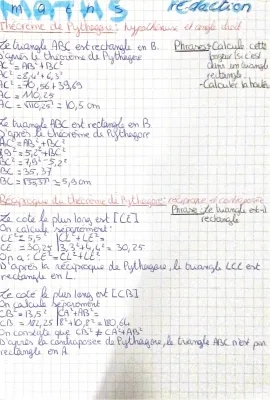 Maths rédaction
Théorème de Pythagore: hypothénuse et angle droit
Le triangle ABC est rectangle en B.
D'après le théorème de Pythagore
AC²=AB²+BC²
AC²=8,4²+6,3²
AC²=70,56+39,69
AC=110,25
AC=√110,25=10,5 cm
Phrases-Calcule cette
dans un triangle
rectangle
-Calculer la
Le triangle ABC est rectangle en B
D'après le théorème de Pythagore
AC²=AB²+BC²
BC²=
BC=35,37
BC=√35,37≈5,9cm
Réciproque du théorème de Pythagore: réciproque et contraposée
Phrase: Le triangle est-il
rectangle
Le coté le plus long est [CE]
On calcule séparément:
CE²=5,5² |CL²+LE²=
CE=30,25 |3,3²+4,4²=30,25
On a: CE²=CL²+LE²
D'après la réciproque de Pythagore, le triangle LCE est
rectangle en L.
Le coté le plus long est [CB]
On calcule séparément
CB²=13,5² |CA²+AB²=
CB=182,25 |8²+10,8²=180,64
On constate que CB²≠CA²+AB²
D'après la contraposée de Pythagore, le triangle ABC n'est pas
rectangle en A.